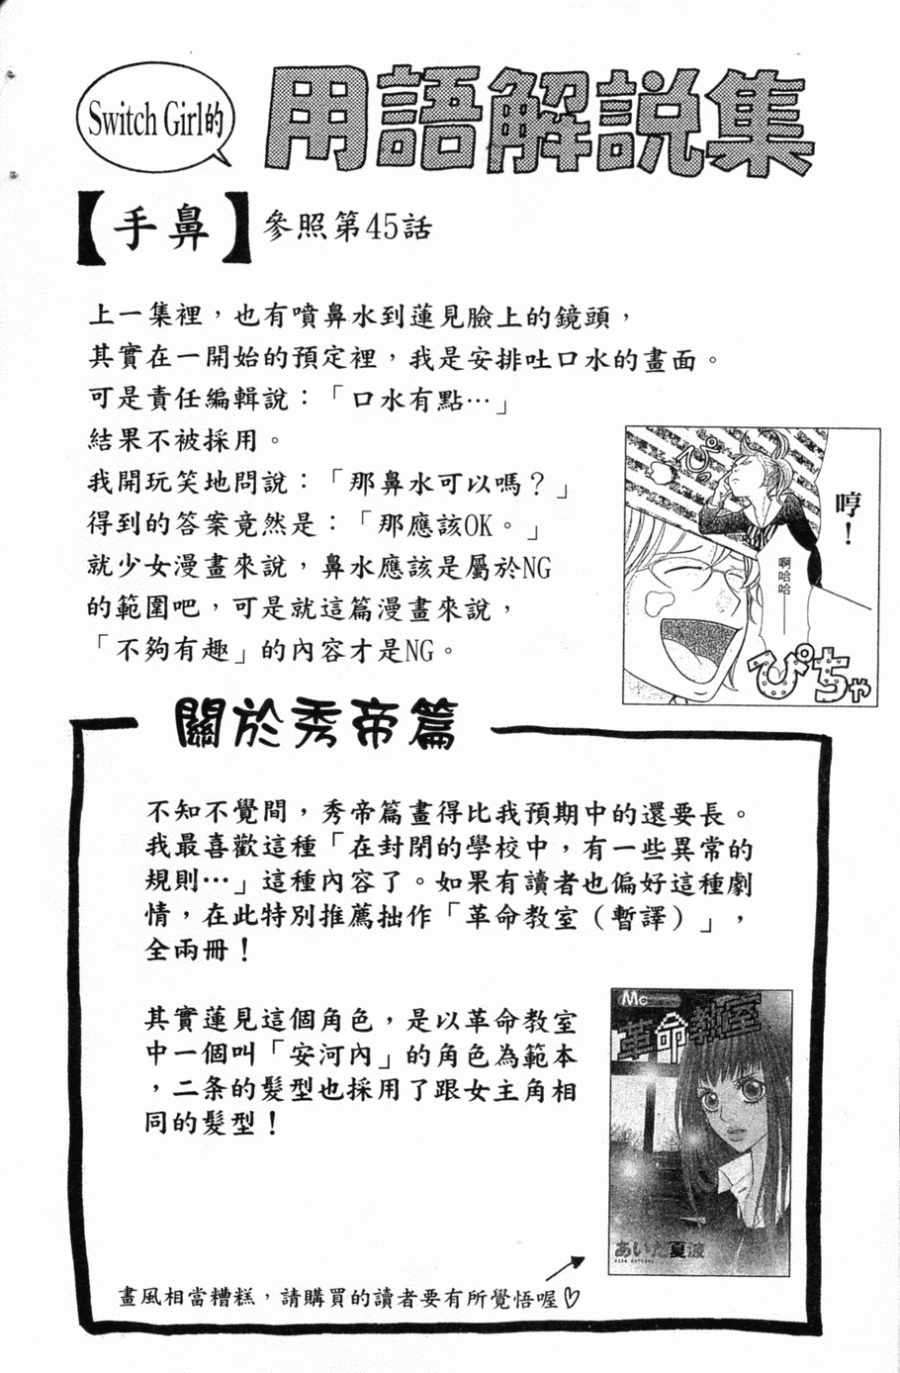 Switch Girl的
用語解說集
【手鼻】參照第45話
上一集裡，也有噴鼻水到蓮見臉上的鏡頭，
其實在一開始的預定裡，我是安排吐口水的畫面。
可是責任編輯說：「口水有點…」
結果不被採用。
我開玩笑地問說：「那鼻水可以嗎？」
得到的答案竟然是：「那應該OK。」
就少女漫畫來說，鼻水應該是屬於NG
的範圍吧，可是就這篇漫畫來說，
「不夠有趣」的內容才是NG。
哼！
啊哈哈——
ぴ。
ぴちゃ
關於秀帝篇
不知不覺間，秀帝篇畫得比我預期中的還要長。
我最喜歡這種「在封閉的學校中，有一些異常的
規則…」這種內容了。如果有讀者也偏好這種劇
情，在此特別推薦拙作「革命教室（暫譯）」，
全兩冊！
其實蓮見這個角色，是以革命教室
中一個叫「安河內」的角色為範本
，二条的髮型也採用了跟女主角相
同的髮型！
Mc
革命教室
あいだ夏波
畫風相當糟糕，請購買的讀者要有所覺悟喔♡